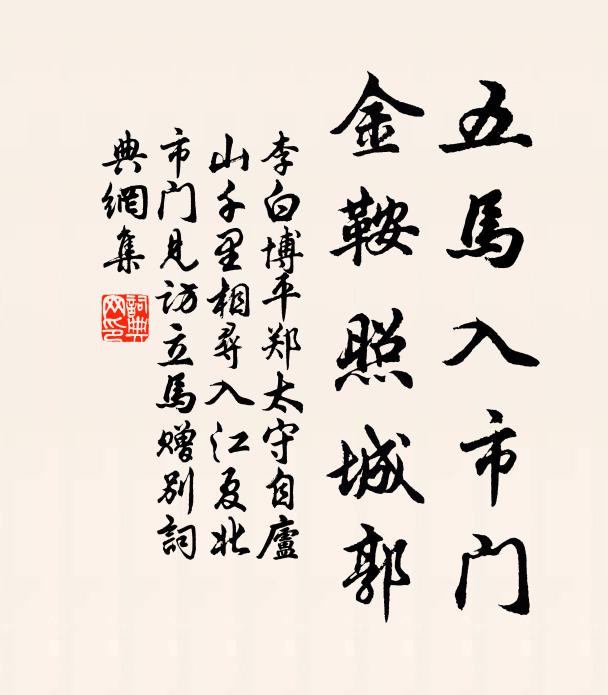 五馬入市门
金鞍照城郭
李白博平郑太守自廬
山千里相尋入江夏北
市门见访立馬赠别詞
典網集
詞典
网印